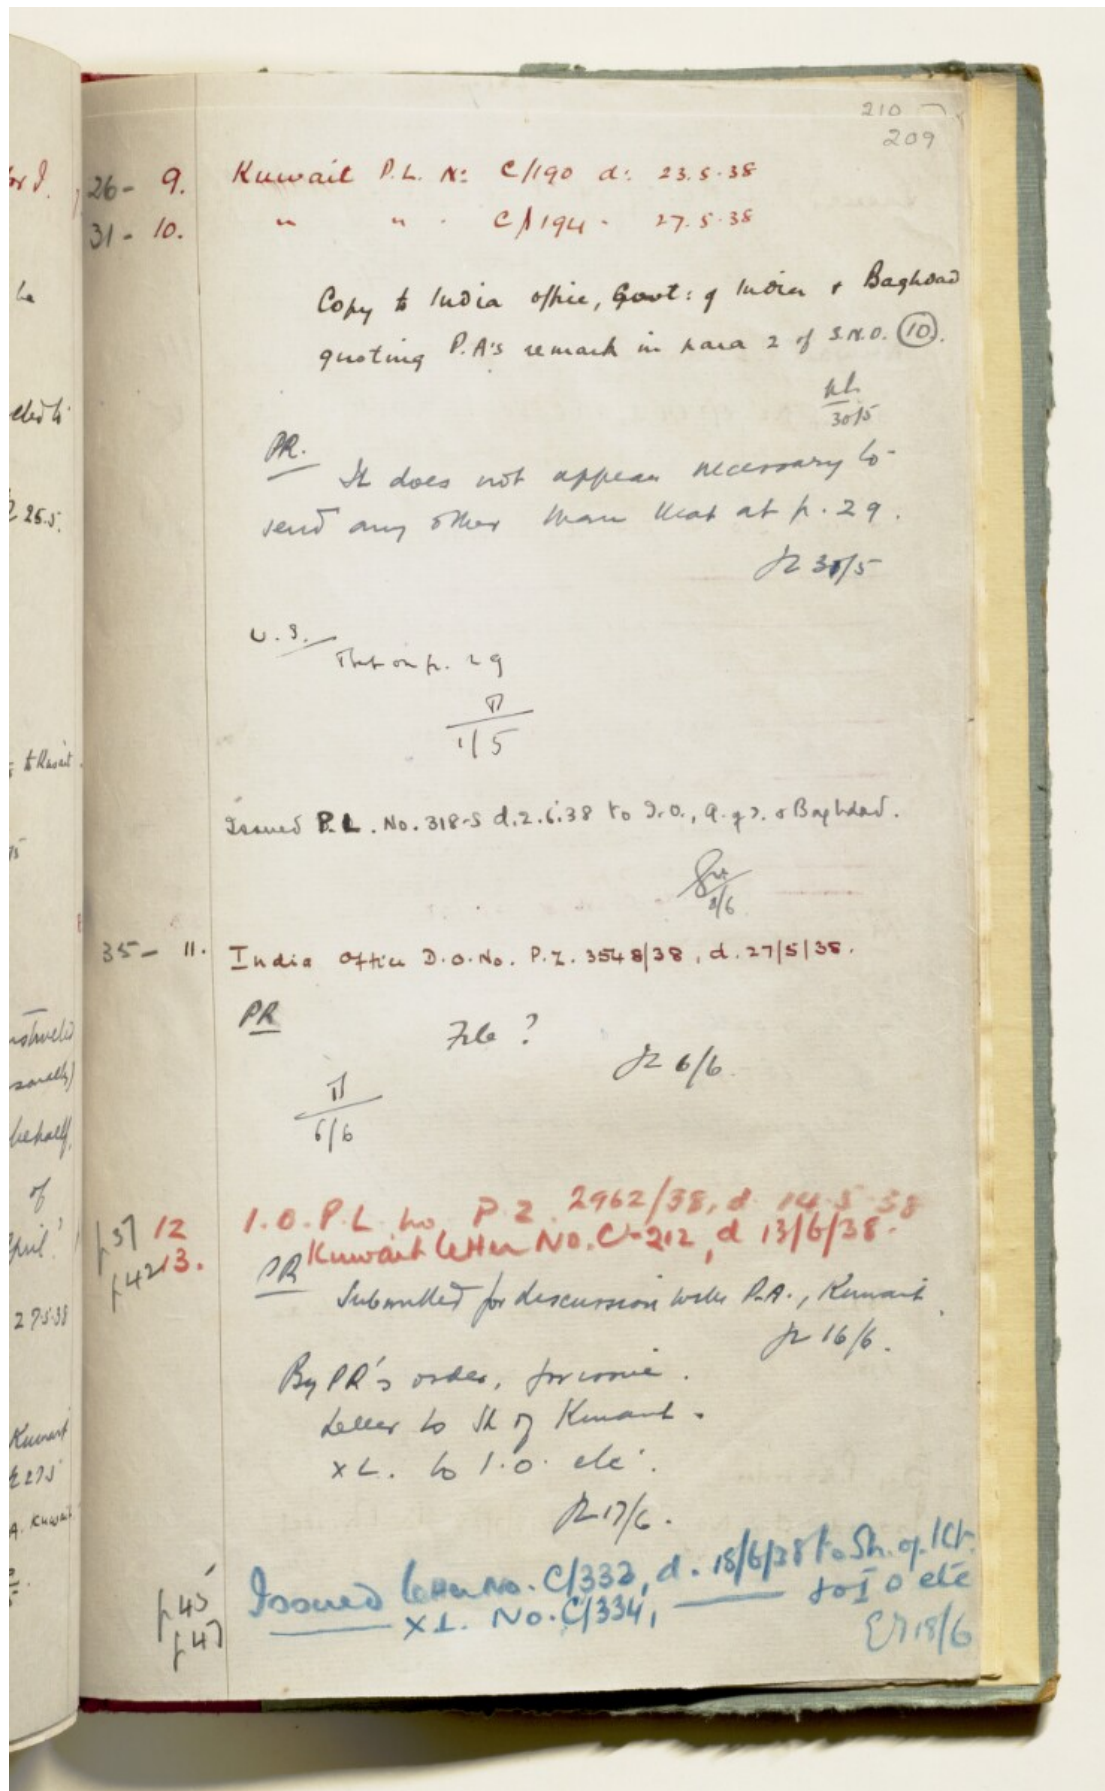 210
209
26- 9. Kuwait P.L. No: C/190 d: 23.5.38
31- 10. " " . C/194 - 27.5.38
Copy to India office, Govt: of India & Baghdad
quoting P.A's remark in para 2 of S.N.O. (10).
30/5
PR.
It does not appear necessary to
send any other than that at p. 29.
30/5
U.S.
That on p. 29
1/5
Issued P.L. No. 318-S d. 2.6.38 to I.O., G. of I. & Baghdad.
2/6
35- 11. India Office D.O. No. P.Z. 3548/38, d. 27/5/38.
PR
File ?
6/6.
6/6
p37 12 I.O. P.L. No. P.Z. 2962/38, d. 14.5.38
p42 13. Kuwait letter No. C-212, d 13/6/38.
PR
Submitted for discussion with P.A., Kuwait.
16/6.
By PR's order,
Letter to Sh of Kuwait.
XL. to I.O. etc.
17/6.
p45 Issued letter No. C/333, d. 18/6/38 to Sh. of Kt.
p47 XL. No. C/334, to I O etc
18/6
to Kuwait
25.5.
behalf,
of
April!
27.5.38
Kuwait
27/5
A. Kuwait